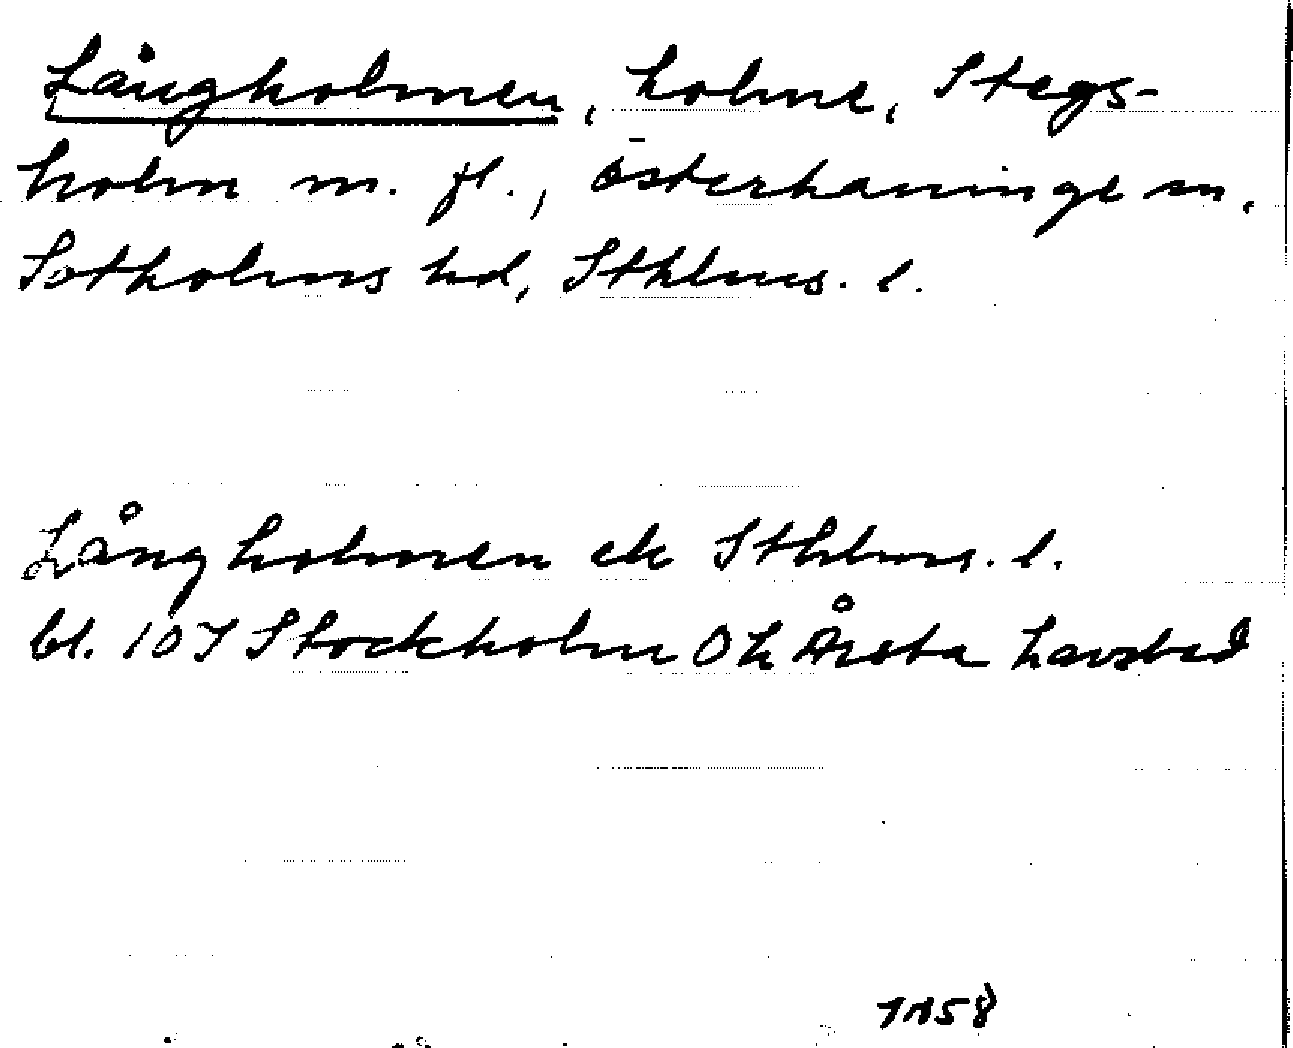 Långholmen, holme, Stegs-
holm m. fl., Österhaninge sn,
Sotholms hd, Sthlms. l.
Långholmen ek Sthlms. l.
bl. 107 Stockholm Årsta havsbad